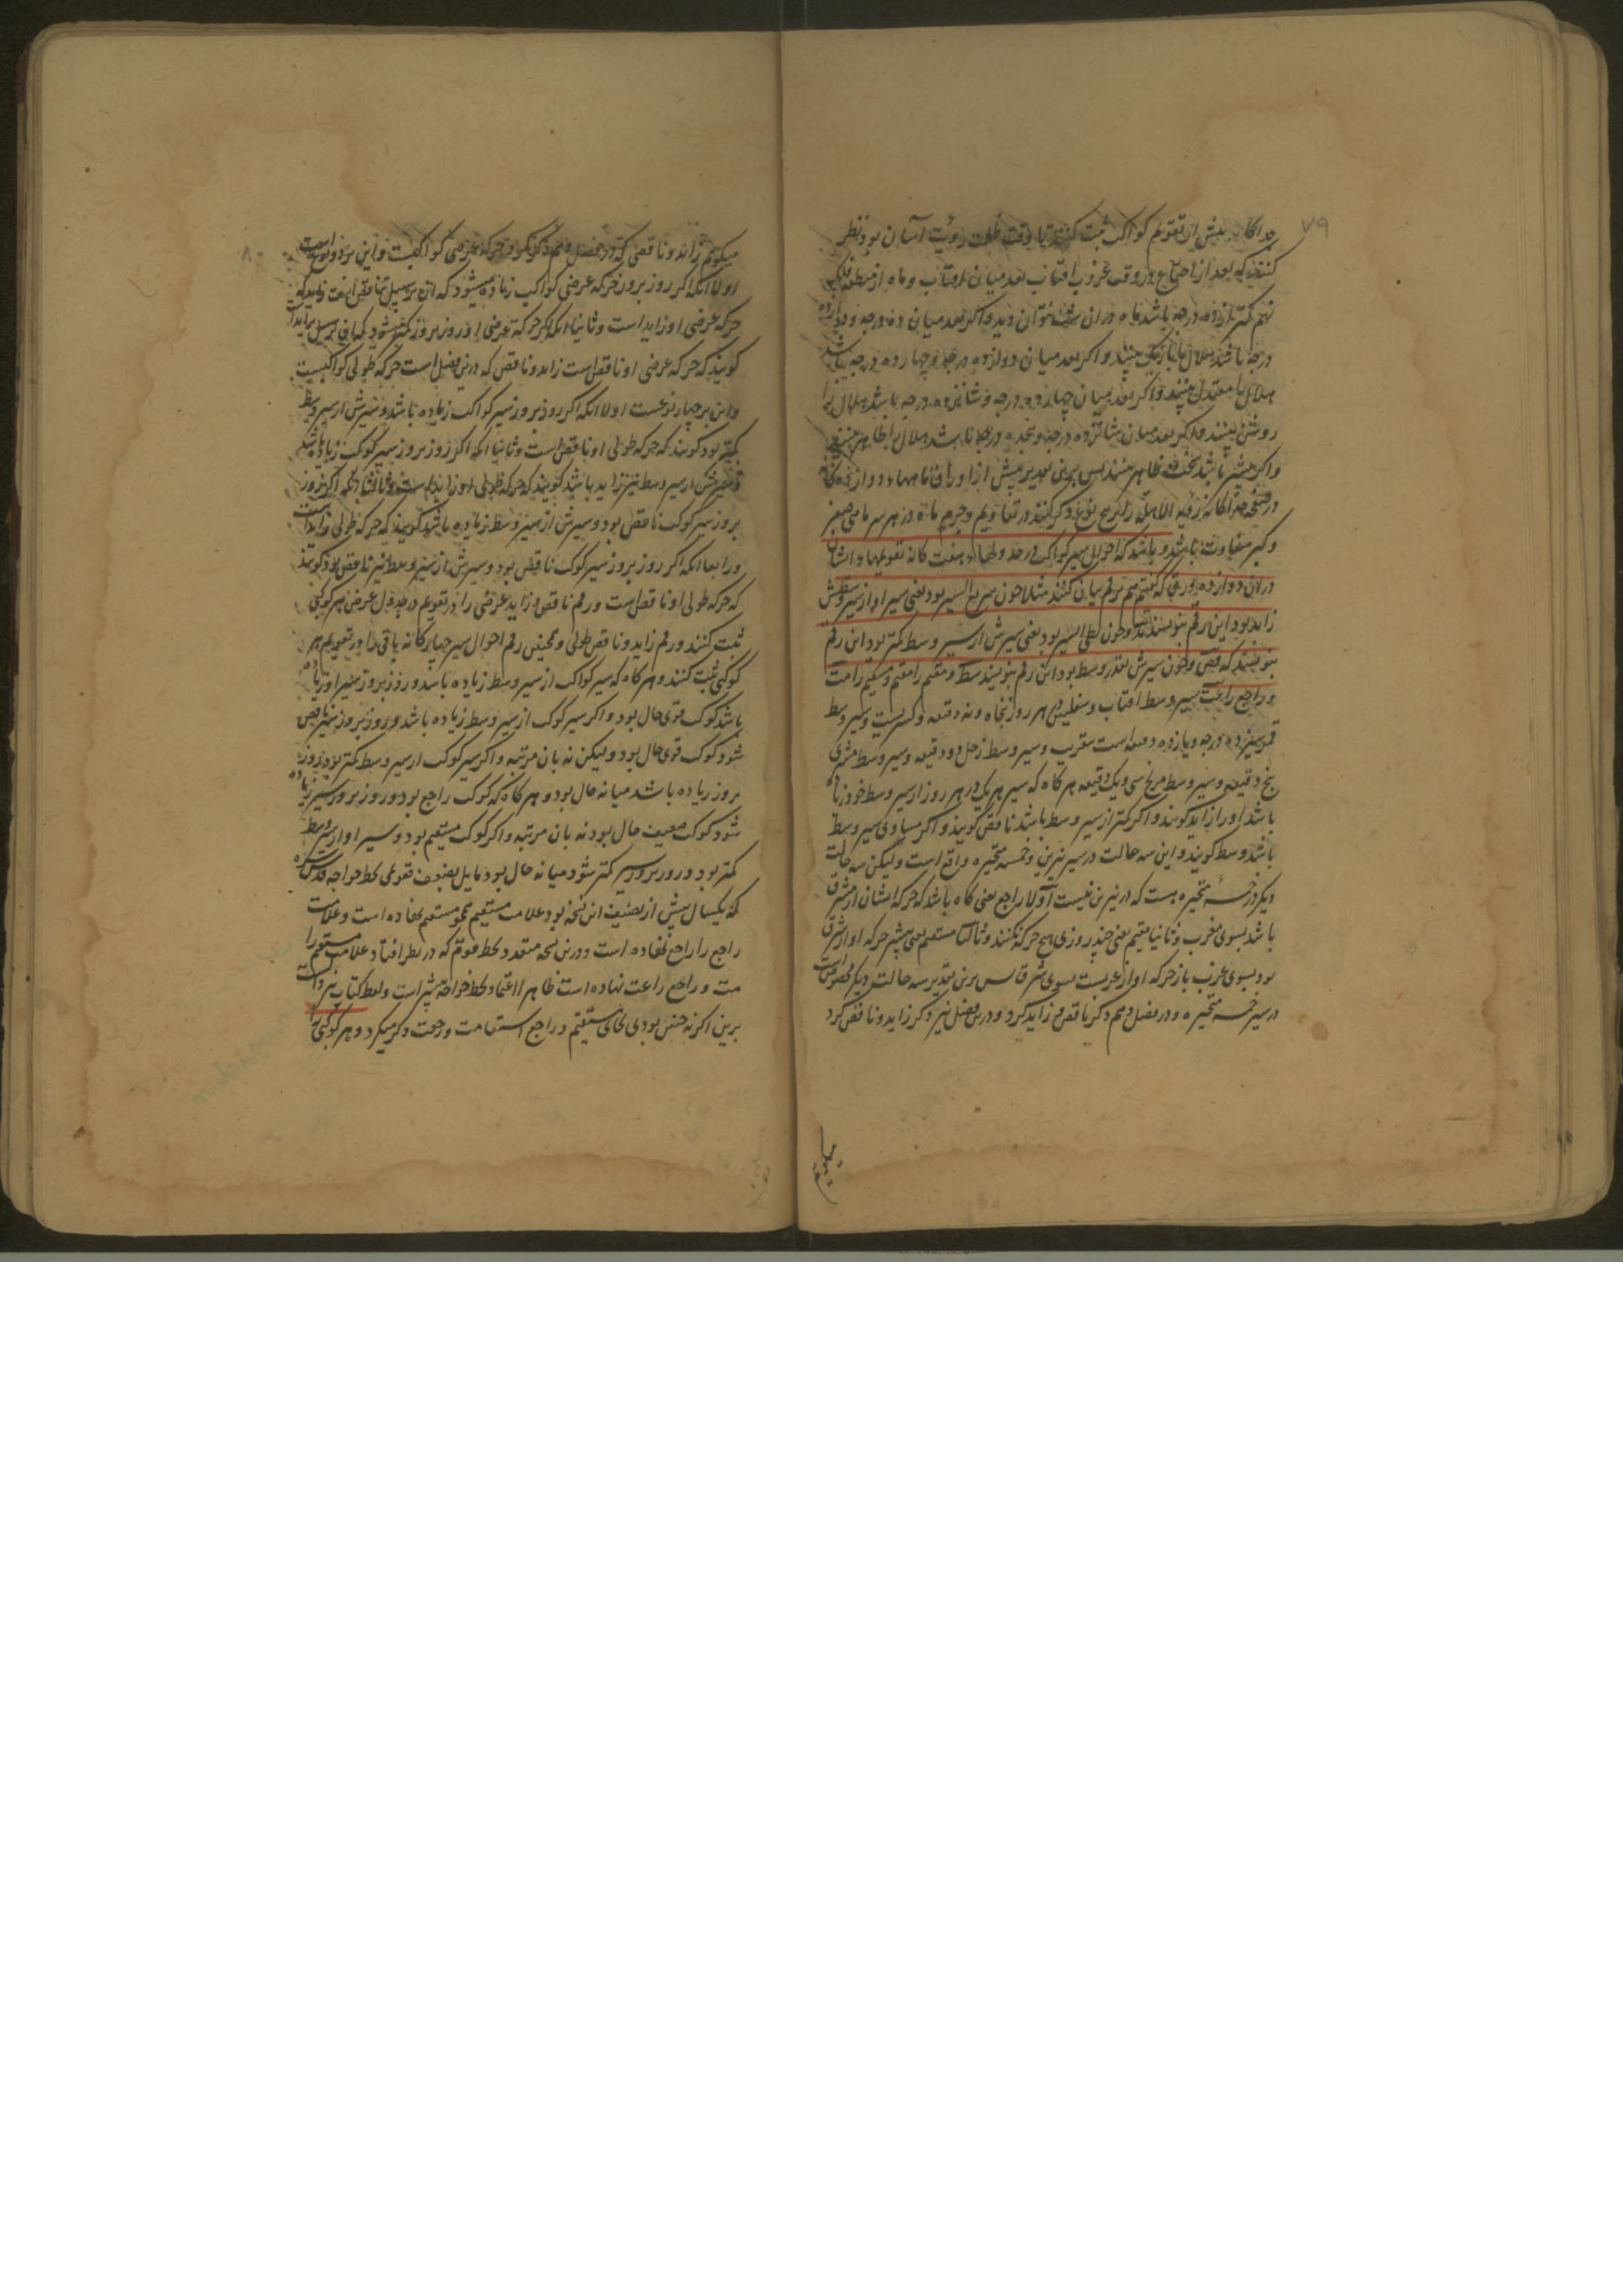 ۷۹
جداگانه پیش از تقویم کواکب ثبت کنند تا وقت طلب رؤیت آسان بود و نظر
کنند که بعد از اجتماع در وقت غروب آفتاب بعد میان آفتاب و ماه از منطقه فلک
نهم کمتر از ده درجه باشد ماه در ان شب نتوان دید و اکر بعد میان ده درجه و دوازده
درجه باشد هلال باریک بینند و اکر بعد میان دوازده درجه و چهارده درجه باشد
هلال را معتدل بینند و اکر بعد میان چهارده درجه و شانزده درجه باشد هلال را
روشن بینند و اکر بعد میان شانزده درجه و هجده درجه باشد هلال را ظاهر بینند
و اکر بیشتر باشد سخت ظاهر بینند پس برین تقدیر پیش از اوراق ماهها دوازده کانه
در صفحه جداکانه رؤیة الاهله را ذکر کنند در تقاویم و جرم ماه در هر سر ماهی صغیر
و کبیر متفاوت باشد و باشد که احوال سیر کواکب در جدولهاء هفت کانه تقویمهاء ایشان
در ان دوازده ورق که کفتیم هم برقم بیان کنند مثلا چون سریع السیر بود یعنی سیر او از سیر وسطش
زاید بود این رقم بنویسند و چون بطی السیر بود یعنی سیرش از سیر وسط کمتر بود این رقم
بنویسند که قص و چون سیرش بقدر وسط بود این رقم بنویسند سط و مقیم را مقیم و مستقیم را مت
و راجع را عت سیر وسط آفتاب و سفلیین در هر روز پنجاه و نه دقیقه و کسریست و سیر وسط
قمر سیزده درجه و یازده دقیقه است بتقریب و سیر وسط زحل دو دقیقه و سیر وسط مشتری
پنج دقیقه و سیر وسط مریخ سی و یک دقیقه هر کاه که سیر هر یک در هر روز از سیر وسط خود زیاده
باشد او را زاید کویند و اکر کمتر از سیر وسط باشد ناقص کویند و اکر مساوی سیر وسط
باشد وسط کویند و این سه حالت در سیر نیرین و خمسه متحیره واقع است و لیکن سه حالت
دیکر در خمسه متحیره هست که در نیرین نیست اولا راجع یعنی کاه باشد که حرکه ایشان از مشرق
باشد بسوی مغرب و ثانیا مقیم یعنی چند روزی هیچ حرکه نکنند و ثالثا مستقیم یعنی بیشتر حرکه او از مشرق
بود بسوی غرب باز حرکه او از غربست بسوی شرق پس برین تقدیر سه حالت دیکر مخصوص است
در سیر خمسه متحیره و در فصل دهم ذکر ناقص و زاید کرد و درین فصل نیز ذکر زاید و ناقص کرد
میکویم
۸۰
میکویم زاید و ناقصی که در فصل دهم ذکر کرد حرکه عرضی کواکبست و این بر دو نوع است
اولا انکه اکر روز بروز حرکه عرضی کواکب زیاده میشود که ان بر سبیل تناقص است زایدکه
حرکه عرضی او زاید است و ثانیا انکه اکر حرکه عرضی او روز بروز کمتر شود که ان بر سبیل تزاید
کویند که حرکه عرضی او ناقص است زاید و ناقص که درین فصل است حرکه طولی کواکبست
و این بر چهار نوعست اولا انکه اکر روز بروز سیر کواکب زیاده باشد و سیرش از سیر وسط
کمتر بود کویند که حرکه طولی او ناقص است و ثانیا انکه اکر روز بروز سیر کوکب زیاده باشد
و سیرش از سیر وسط نیز زاید باشد کویند که حرکه طولی او زاید است و ثالثا انکه اکر روز
بروز سیر کوکب ناقص بود و سیرش از سیر وسط زیاده باشد کویند که حرکه طولی زاید است
و رابعا انکه اکر روز بروز سیر کوکب ناقص بود و سیرش از سیر وسط نیز ناقص بود کویند
که حرکه طولی او ناقص است و رقم ناقص و زاید عرضی را در تقویم در جدول عرض هر کوکبی
ثبت کنند و رقم زاید و ناقص طولی و همچنین رقم احوال سیر چهارکانه باقی را در تقویم هر
کوکبی ثبت کنند و هر کاه که سیر کواکب از سیر وسط زیاده باشد و روز بروز سیر او زیاده
باشد کوکب قوی حال بود و اکر سیر کوکب از سیر وسط زیاده باشد و روز بروز سیر ناقص
شود کوکب قوی حال بود و لیکن نه بان مرتبه و اکر سیر کوکب از سیر وسط کمتر بود و روز
بروز زیاده باشد میانه حال بود و هر کاه که کوکب راجع بود و روز بروز سیر زیاده
شود کوکب ضعیف حال بود نه بان مرتبه و اکر کوکب مستقیم بود و سیر او از سیر وسط
کمتر بود و روز بروز سیر کمتر شود میانه حال بود مایل بضعف تقویمی بخط خواجه قدس سره
که یکسال پیش از تصنیف این نسخه بود علامت مستقیم نحو مستقیم نهاده است و علامت
راجع را راجع نهاده است و درین نسخه متعدد بخط قوم که در نظر افتاد علامت مستقیم را
مت و راجع را عت نهاده است ظاهرا اعتماد بخط خواجه بیشتر است و لفظ کتاب نیز دالست
برین اکر نه چنین بودی بجای مستقیم و راجع استقامت و رجعت ذکر میکرد و هر کوکبی را